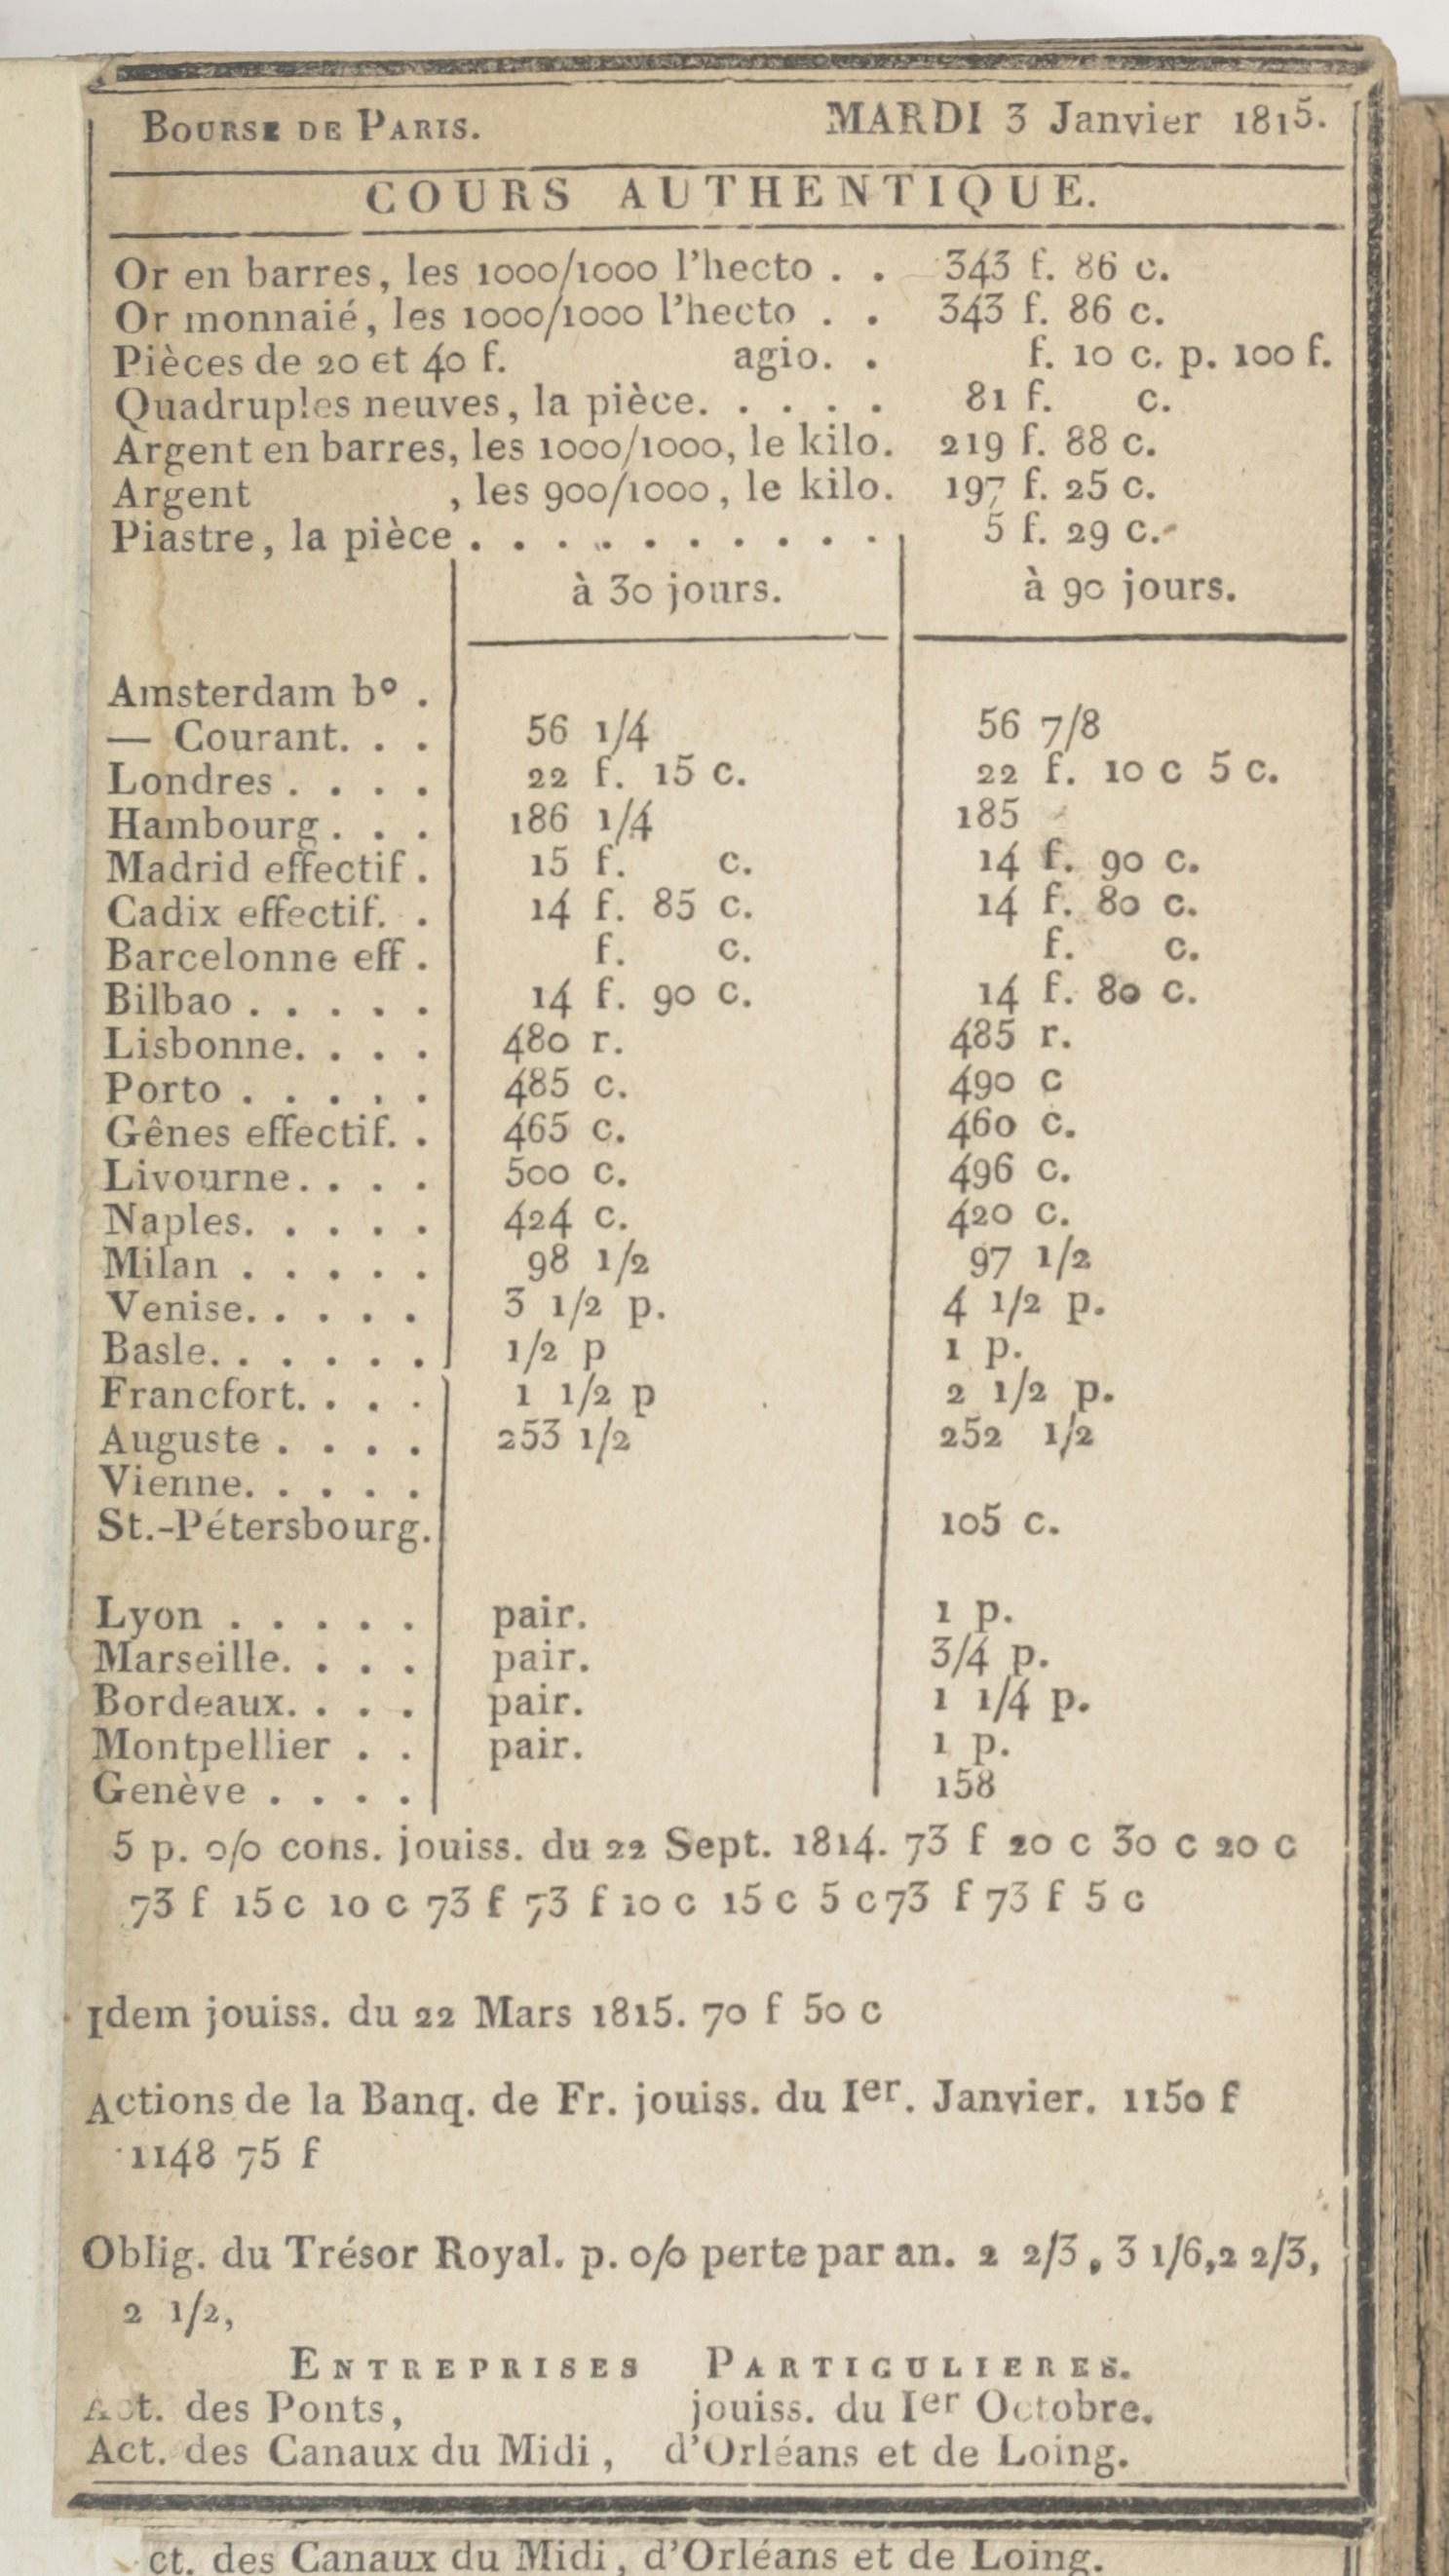 BOURSE DE PARIS. MARDI 3 Janvier 1815.
COURS AUTHENTIQUE.
Or en barres, les 1000/1000 l'hecto . . 343 f. 86 c.
Or monnaié, les 1000/1000 l'hecto . . 343 f. 86 c.
Pièces de 20 et 40 f. agio. . f. 10 c. p. 100 f.
Quadruples neuves, la pièce. . . . . 81 f. c.
Argent en barres, les 1000/1000, le kilo. 219 f. 88 c.
Argent , les 900/1000, le kilo. 197 f. 25 c.
Piastre, la pièce . . . . . . . . . . 5 f. 29 c.
à 30 jours. à 90 jours.
Amsterdam bº .
— Courant. . . 56 1/4 56 7/8
Londres . . . . 22 f. 15 c. 22 f. 10 c 5 c.
Hambourg . . . 186 1/4 185
Madrid effectif . 15 f. c. 14 f. 90 c.
Cadix effectif. . 14 f. 85 c. 14 f. 80 c.
Barcelonne eff . f. c. f. c.
Bilbao . . . . . 14 f. 90 c. 14 f. 80 c.
Lisbonne. . . . 480 r. 485 r.
Porto . . . . . 485 c. 490 c
Gênes effectif. . 465 c. 460 c.
Livourne. . . . 500 c. 496 c.
Naples. . . . . 424 c. 420 c.
Milan . . . . . 98 1/2 97 1/2
Venise. . . . . 3 1/2 p. 4 1/2 p.
Basle. . . . . . 1/2 p 1 p.
Francfort. . . . 1 1/2 p 2 1/2 p.
Auguste . . . . 253 1/2 252 1/2
Vienne. . . . .
St.-Pétersbourg. 105 c.
Lyon . . . . . pair. 1 p.
Marseille. . . . pair. 3/4 p.
Bordeaux. . . . pair. 1 1/4 p.
Montpellier . . pair. 1 p.
Genève . . . . 158
5 p. o/o cons. jouiss. du 22 Sept. 1814. 73 f 20 c 30 c 20 c
73 f 15 c 10 c 73 f 73 f 10 c 15 c 5 c 73 f 73 f 5 c
Idem jouiss. du 22 Mars 1815. 70 f 50 c
Actions de la Banq. de Fr. jouiss. du Ier. Janvier. 1150 f
1148 75 f
Oblig. du Trésor Royal. p. o/o perte par an. 2 2/3, 3 1/6, 2 2/3,
2 1/2,
ENTREPRISES PARTICULIERES.
Act. des Ponts, jouiss. du Ier Octobre.
Act. des Canaux du Midi, d'Orléans et de Loing.
ct. des Canaux du Midi, d'Orléans et de Loing.